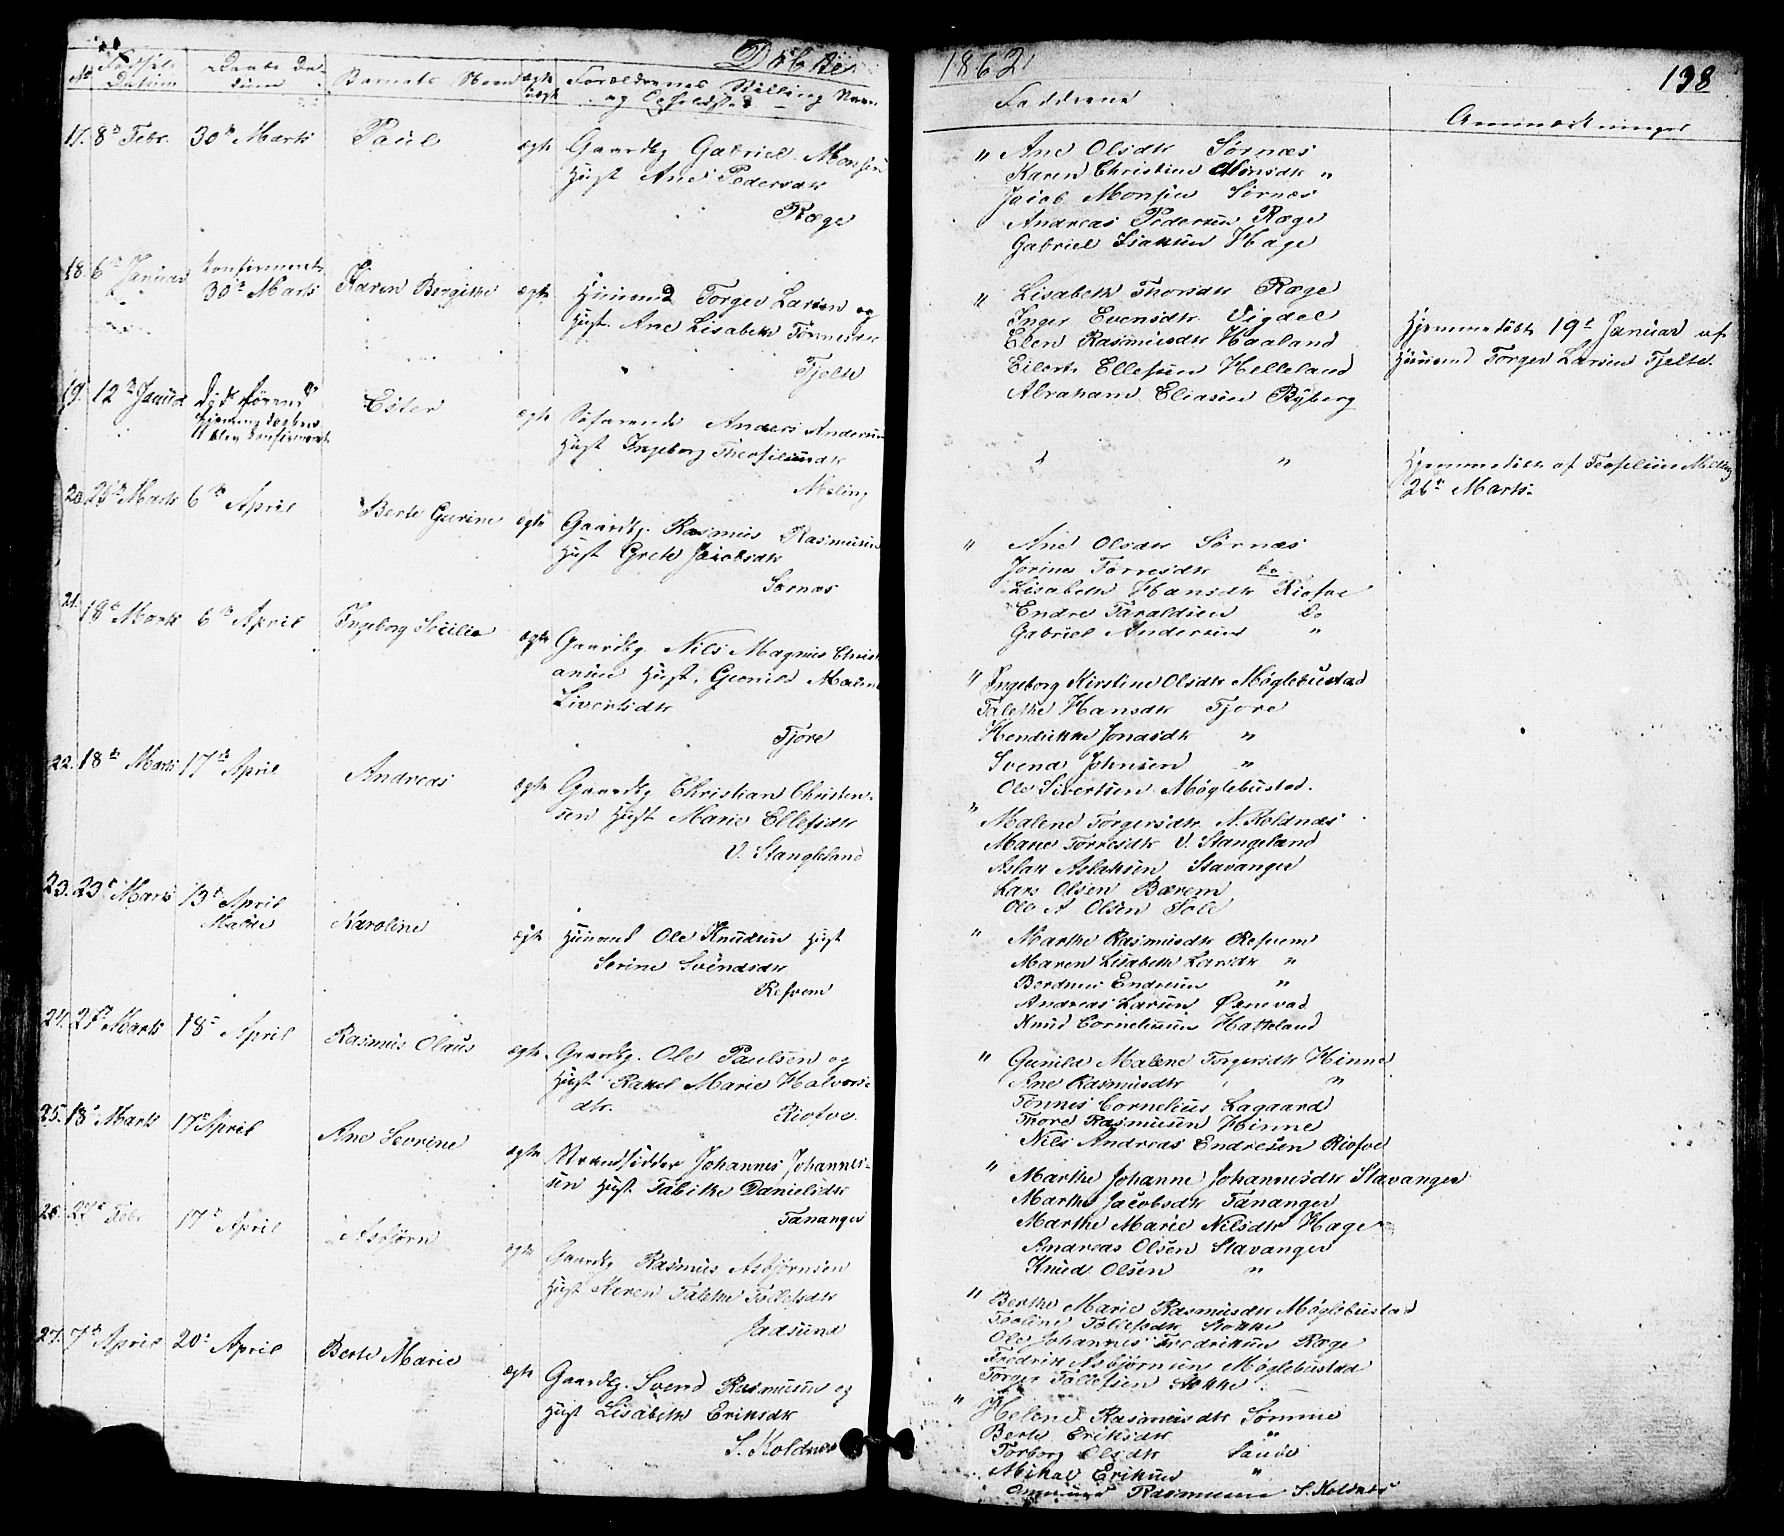 Döbte 1862
138
No Födsels Datum
Daabs Datum
Barnets Navn
ægte uægte
Forældrenes Stilling Navn og Opholdsted
Fadderne
Anmærkninger
17. 8de Febr. 30te Marts Paul ægte Gaardbg Gabriel Monsen
Hust Ane Pedersdtr
Ræge
" Ane Olsdtr Sörnæs
Karen Christine Monsdtr "
Jacob Monsen Sörnæs
Andreas Pedersen Ræge
Gabriel Isaksen Hage
18. 6te Januar Konfirmeret 30te Marts Karen Bergitte ægte Huusmd Torger Larsen og
Hust. Ane Lisabeth Tönnesdtr
Tjelte
" Lisabeth Thorsdtr Ræge
Inger Evensdtr Vigdel
Elen Rasmusdtr Haaland
Eilert Ellefsen Helleland
Abraham Eliasen Ryberg
Hjemmedöbt 19de Januar af
Huusmd Torger Larsen Tjelte.
19. 12te Januar Död förend
Hjemmedaaben
blev konfirmeret
Ester ægte Söfarende Anders Andersen
Hust Ingeborg Theofiliusdtr
Meling
" "
Hjemmedöbt af Teofilius Meling
26de Marts.
20 25de Marts 6te April Berte Gurine ægte Gaardbg. Rasmus Rasmusen
Hust Grete Jacobsdtr
Sörnæs
" Ane Olsdtr Sörnæs
Jorine Torresdtr Do
Lisabeth Hansdtr Risfoe
Endre Taraldsen Do
Gabriel Andersen "
21. 18de Marts 6te April Ingeborg Secilia ægte Gaardbg Nils Magnus Christi
ansen Hust. Gunild Malene
Sivertsdtr
Tjore
" Ingeborg Kirstine Olsdtr Möglebustad
Talette Hansdtr Tjore
Hendrikke Jonasdtr "
Svend Johnsen "
Ole Sivertsen Möglebustad.
22. 18de Marts 17de April Andreas ægte Gaardbg Christian Christen-
sen Hust Marie Ellefsdtr
V. Stangeland
" Malene Torgersdtr N. Koldnæs
Marie Torresdtr V. Stangeland
Aslak Aslaksen Stavanger
Lars Olsen Bærem
Ole A Olsen Sole
23. 23de Marts 13de April
Malde
Karoline ægte Huusmd Ole Knudsen Hust
Serine Svendsdtr
Refsem
" Marthe Rasmusdtr Refsem
Maren Lisabeth Larsdtr "
Berdines Endresen "
Andreas Larsen Öxnevad
Knud Corneliusen Hatteland
24. 21de Marts 18de April Rasmus Olaus ægte Gaardbg. Ole Paulsen og
Hust Rakel Marie Halvors-
dtr.
Risfoe.
" Gunild Malene Torgersdtr Hinne
Ane Rasmusdtr "
Tönnes Cornelius Lagaard
Thore Rasmusen Hinne
Nils Andreas Endresen Risfoe
25. 18de Marts 17de April Ane Severine ægte Strandsidder Johannes Johannes-
sen Hust Tabitha Danielsdtr
Tananger
" Marthe Johanne Johannesdtr Stavanger
Marthe Jacobsdtr Tananger
Marthe Marie Nilsdtr Hage
Andreas Olsen Stavanger
Knud Olsen "
26. 27de Febr 17de April Asbjörn ægte Gaardbg Rasmus Asbjörnsen
Hust Karen Talette Tollefsdtr
Jaasund
" Berthe Marie Rasmusdtr Möglebustad
Teoline Tollefsdtr Stokke
Ole Johannes Fredriksen Ræge
Fredrik Asbjörnsen Möglebustad
Torger Tollefsen Stokke.
27. 7de April 20de April Berte Marie ægte Gaardbg. Svend Rasmusen og
Hust Lisabeth Eriksdtr
S. Koldnæs
" Helene Rasmusdtr Sömme
Berte Eriksdtr "
Torborg Olsdtr Sande
Mikal Eriksen "
Rasmusen S. Koldnæs